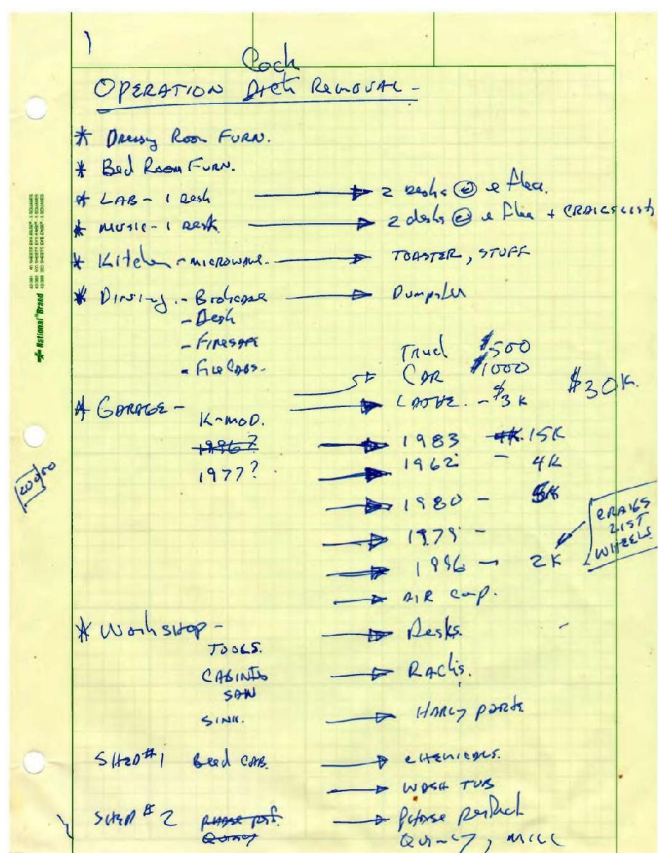 1
Rock
OPERATION Removal -
* Dressing Room FURN.
* Bed Room FURN.
* LAB - 1 Desk → 2 desks @ e flea.
* MUSIC - 1 Desk → 2 desks @ e flea + CRAIGSLIST
* Kitchen - MICROWAVE. → TOASTER, STUFF
* Dining - Bookcase → Dumpster
- Desk
- FIRESAFE
- FILE CABS.
Truck $500
CAR $1000
$30K.
* GARAGE - → LATHE. - $3K
K-MOD.
1996? → 1983 4K 15K
1977? → 1962 - 4K
→ 1980 -
→ 1979 -
→ 1996 - 2K
CRAIGS
LIST
WHEELS
→ AIR comp.
* Workshop - → Desks.
TOOLS.
CABINETS → Racks.
SAW
SINK. → HARLEY parts
SHED #1 Bead CAB. → CHEMICALS.
→ WASH TUB
SHED #2 PHASE → Phase
Quincy Quincy, MILL
National Brand